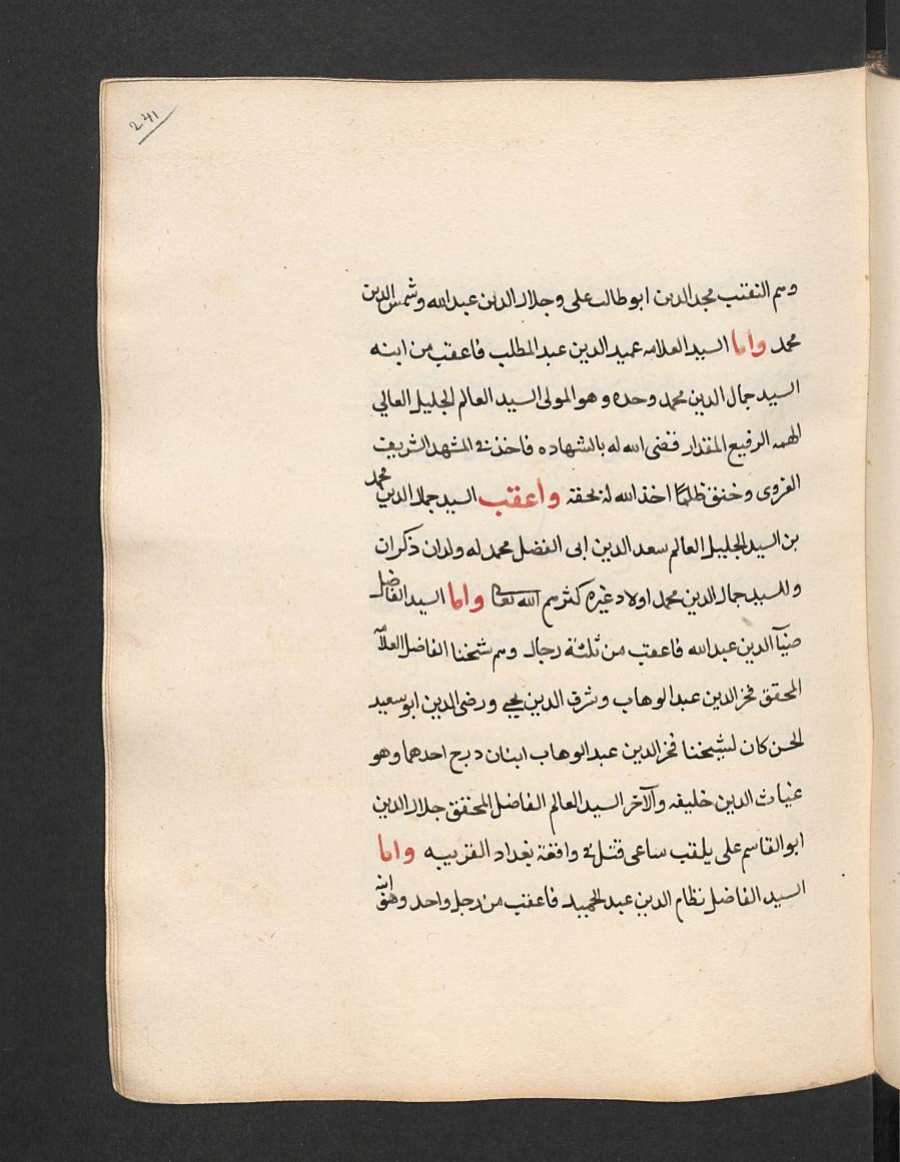 241
وهم النقيب مجد الدين ابو طالب على وجلال الدين عبد الله وشمس الدين
محمد واما السيد العلامه عميد الدين عبد المطلب فاعقب من ابنه
السيد جمال الدين محمد وحده وهو المولى السيد العالم الجليل العالي
الهمه الرفيع المقدار فقضى الله له بالشهاده فاخذ فى المشهد الشريف
الغروى وخنق ظلمًا اخذ الله له بحقه واعقب السيد جمال الدين محمد
بن السيد الجليل العالم سعد الدين ابى الفضل محمد له ولدان ذكران
وللسيد جمال الدين محمد اولاد غيره كثرهم الله تعا واما السيد الفاضل
ضيآ الدين عبد الله فاعقب من ثلثة رجال وهم شيخنا الفاضل العلآ
المحقق فخر الدين عبد الوهاب وشرف الدين يحيى ورضى الدين ابو سعيد
الحسن كان لشيخنا فخر الدين عبد الوهاب ابنان درج احدهما وهو
غياث الدين خليفه والآخر السيد العالم الفاضل المحقق جلال الدين
ابو القاسم على يلقب ساعى قتل فى واقعة بغداد القريبه واما
السيد الفاضل نظام الدين عبد الحميد فاعقب من رجل واحد وهو ابنه